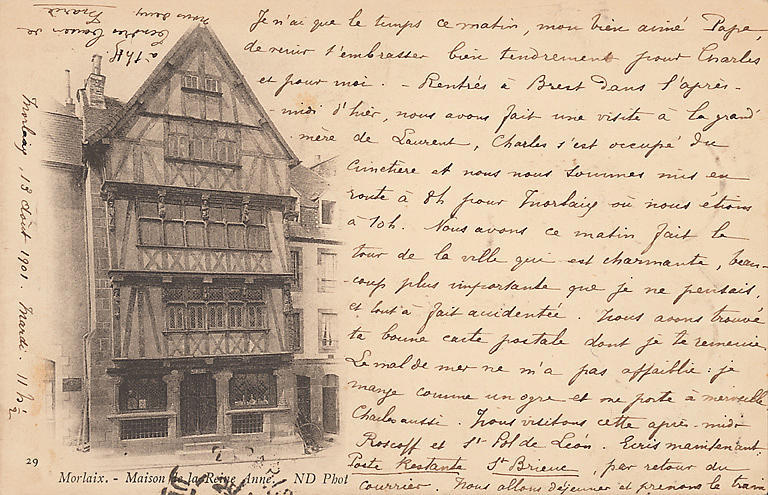 Je n'ai que le temps ce matin, mon bien aimé Papa,
de venir t'embrasser bien tendrement pour Charles
et pour moi. - Rentrés à Brest dans l'après-
-midi d'hier, nous avons fait une visite à la grand'
-mère de Laurent, Charles s'est occupé du
cimetière et nous nous sommes mis en
route à 8h pour Morlaix où nous étions
à 10h. Nous avons ce matin fait le
tour de la ville qui est charmante, beau-
-coup plus importante que je ne pensais,
et tout à fait accidentée. Nous avons trouvé
ta bonne carte postale dont je te remercie.
Le mal de mer ne m'a pas affaiblie : je
mange comme un ogre et me porte à merveille
Charles aussi. Nous visitons cette après-midi
Roscoff et St Pol de Léon. Écris maintenant:
Poste Restante St Brieuc, par retour du
courrier. Nous allons déjeuner et prenons le train
à 1h
Tendres baisers de
nous deux,
Marie
Morlaix, 13 Août 1901. Mardi. 11 h ½
29
Morlaix. - Maison de la Reine Anne. ND Phot